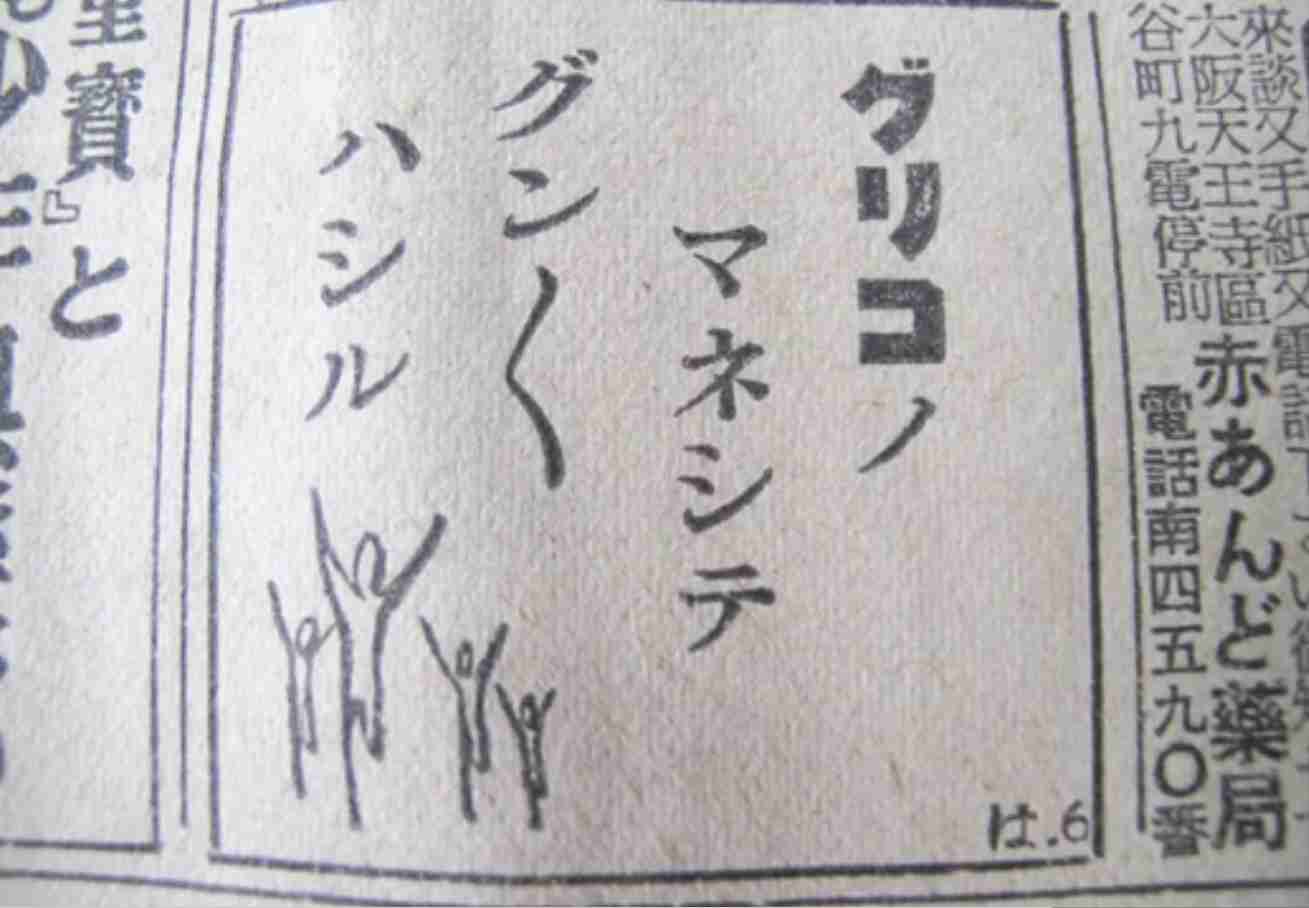 來談又手紙又電話
大阪天王寺區
谷町九電停前
赤あんど薬局
電話南四五九〇番
グリコノ
マネシテ
グン〱
ハシル
は.6
寶』と